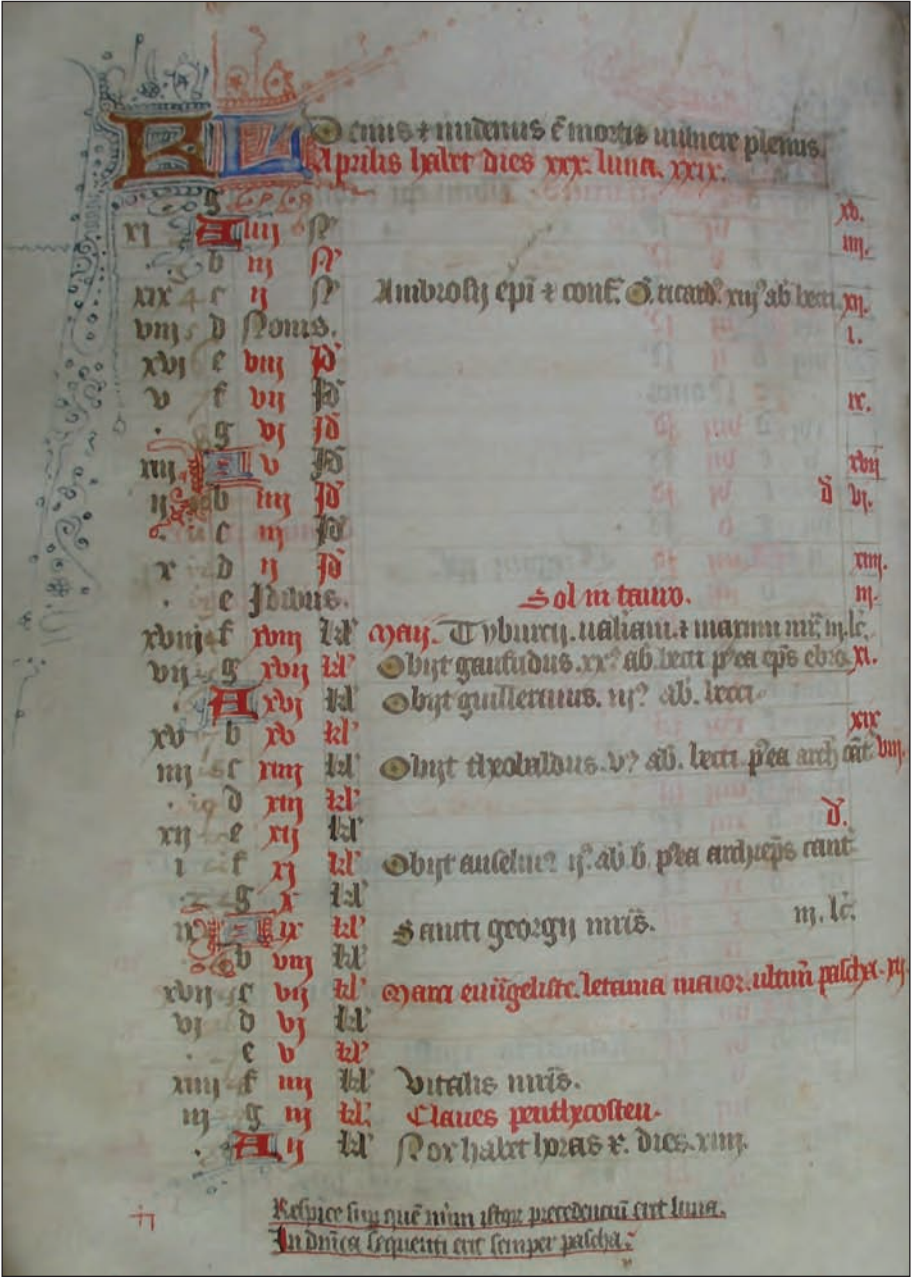 KL Denus & undenus ē mortis uulnere plenus.
Aprilis habet dies xxx. luna. xxix.
g
xj A iiij N' xv.
b iij N' iiij.
xix c ij N' Ambrosij epī & conf. O. ricard'. xiij' ab becci. xij.
viij d Nonis. i.
xvj e viij Id'
v f vij Id' ix.
. g vj Id'
xiij A v Id' xvij
ij b iiij Id' d vj.
. c iij Id'
x d ij Id' xiiij.
. e Idibus. Sol in tauro. iij.
xviij f xviij kl' Maij. Tyburcij. ualiani. & maximi mr̄. iij. lc̄.
vij g xvij kl' Obijt gaufridus. xx? ab. becci p'ea ep̄s ebro. xi.
. A xvj kl' Obijt guillermus. iij? ab. becci.
xv b xv kl' xix
iiij c xiiij kl' Obijt theobaldus. v? ab. becci. p'ea arch cāt viij.
. d xiij kl'
xij e xij kl' d.
i f xj kl' Obijt anselm? ij'. ab. b. p'ea archiep̄s cant
. g x kl'
ix A ix kl' Sancti georgij mr̄is. iij. lc̄.
. b viij kl'
xvij c vij kl' Marci euūgeliste. letania maior. ultim̄ pascha. xij
vj d vj kl'
. e v kl'
xiiij f iiij kl' Vitalis mr̄is.
iij g iij kl' Claues penthecosten.
. A ij kl' Nox habet horas x. dies. xiiij.
Respice sup quē num istor precedenciū erit luna.
In dn̄ica sequenti erit semper pascha.